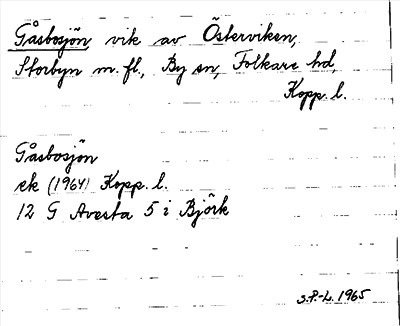 Gåsbosjön, vik av Österviken,
Storbyn m.fl., By sn, Folkare hd,
Kopp. l.
Gåsbosjön
ek (1964) Kopp. l.
12 G Avesta 5 i Björk
S.P.-L. 1965